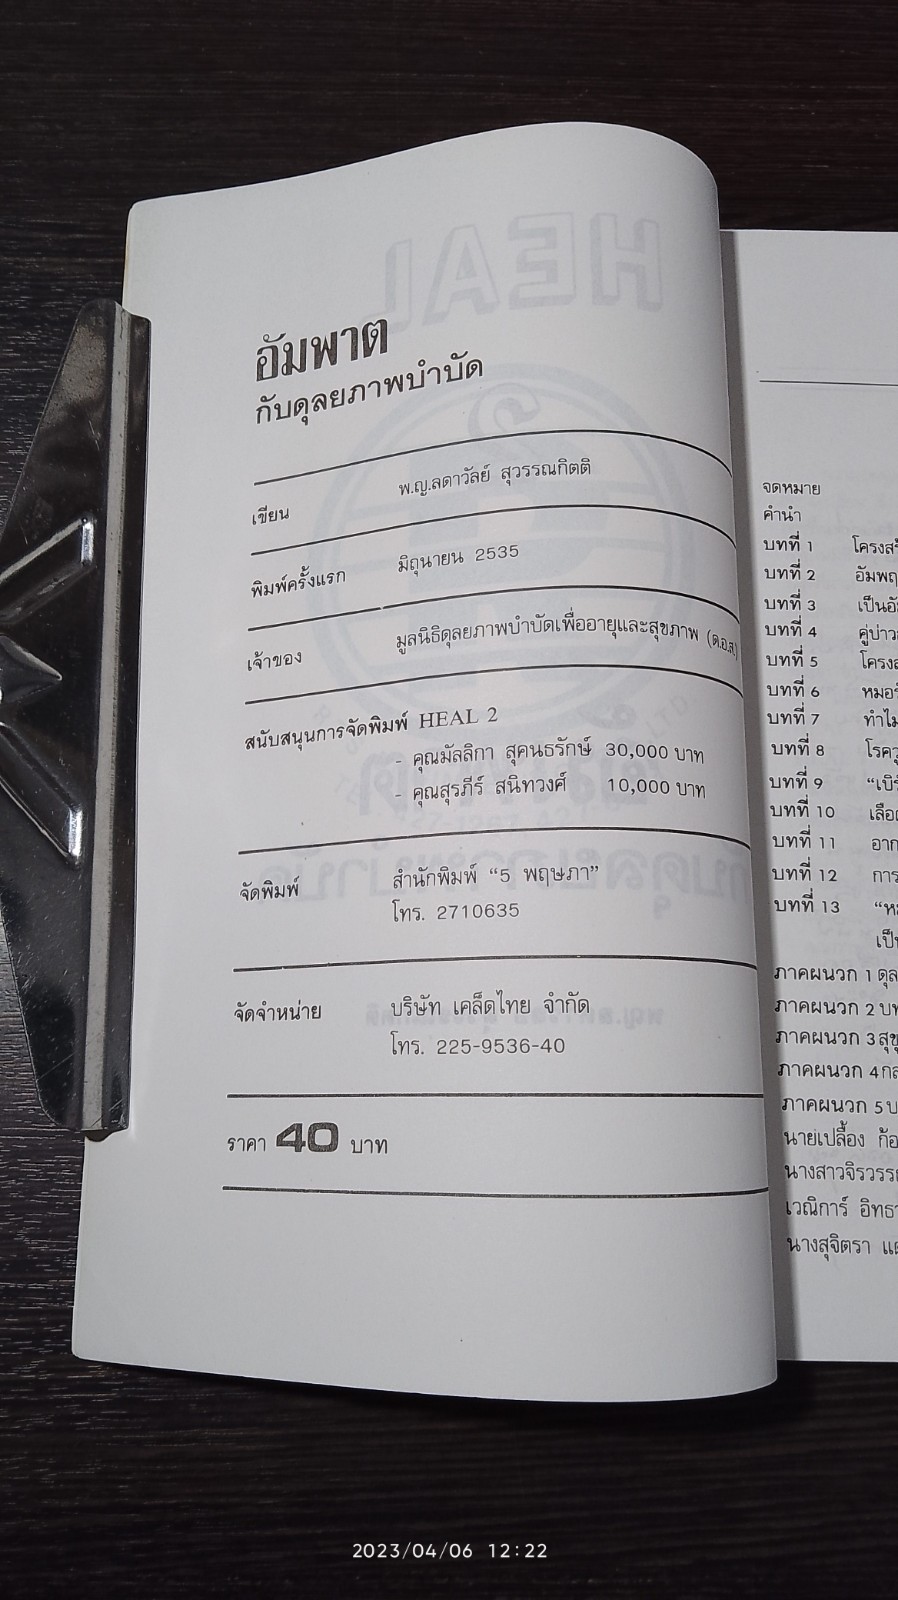 อัมพาต
กับดุลยภาพบำบัด
เขียน พ.ญ.ลดาวัลย์ สุวรรณกิตติ
พิมพ์ครั้งแรก มิถุนายน 2535
เจ้าของ มูลนิธิดุลยภาพบำบัดเพื่ออายุและสุขภาพ (ด.อ.ส.)
สนับสนุนการจัดพิมพ์ HEAL 2
- คุณมัลลิกา สุคนธรักษ์ 30,000 บาท
- คุณสุรภีร์ สนิทวงศ์ 10,000 บาท
จัดพิมพ์ สำนักพิมพ์ “5 พฤษภา”
โทร. 2710635
จัดจำหน่าย บริษัท เคล็ดไทย จำกัด
โทร. 225-9536-40
ราคา 40 บาท
จดหมาย
คำนำ
บทที่ 1
บทที่ 2
บทที่ 3
บทที่ 4
บทที่ 5
บทที่ 6
บทที่ 7 ทำไม
บทที่ 8
บทที่ 9
บทที่ 10
บทที่ 11
บทที่ 12 การ
บทที่ 13
ภาคผนวก 1
ภาคผนวก 2
ภาคผนวก 3
ภาคผนวก 4
ภาคผนวก 5
นายเปลื้อง
นางสาว
เวณิการ์
นางสุจิตรา
HEAL
2023/04/06 12:22